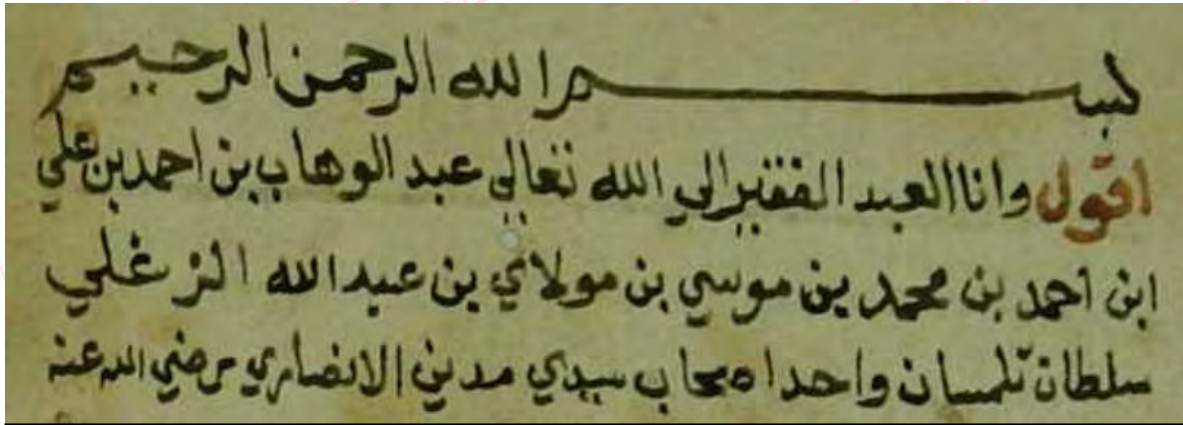 بسم الله الرحمن الرحيم
اقول وانا العبد الفقير الي الله تعالي عبد الوهاب بن احمد بن علي
ابن احمد بن محمد بن موسي بن مولاي بن عبد الله الزغلي
سلطان تلمسان واحد اصحاب سيدي مدين الانصاري رضي الله عنه